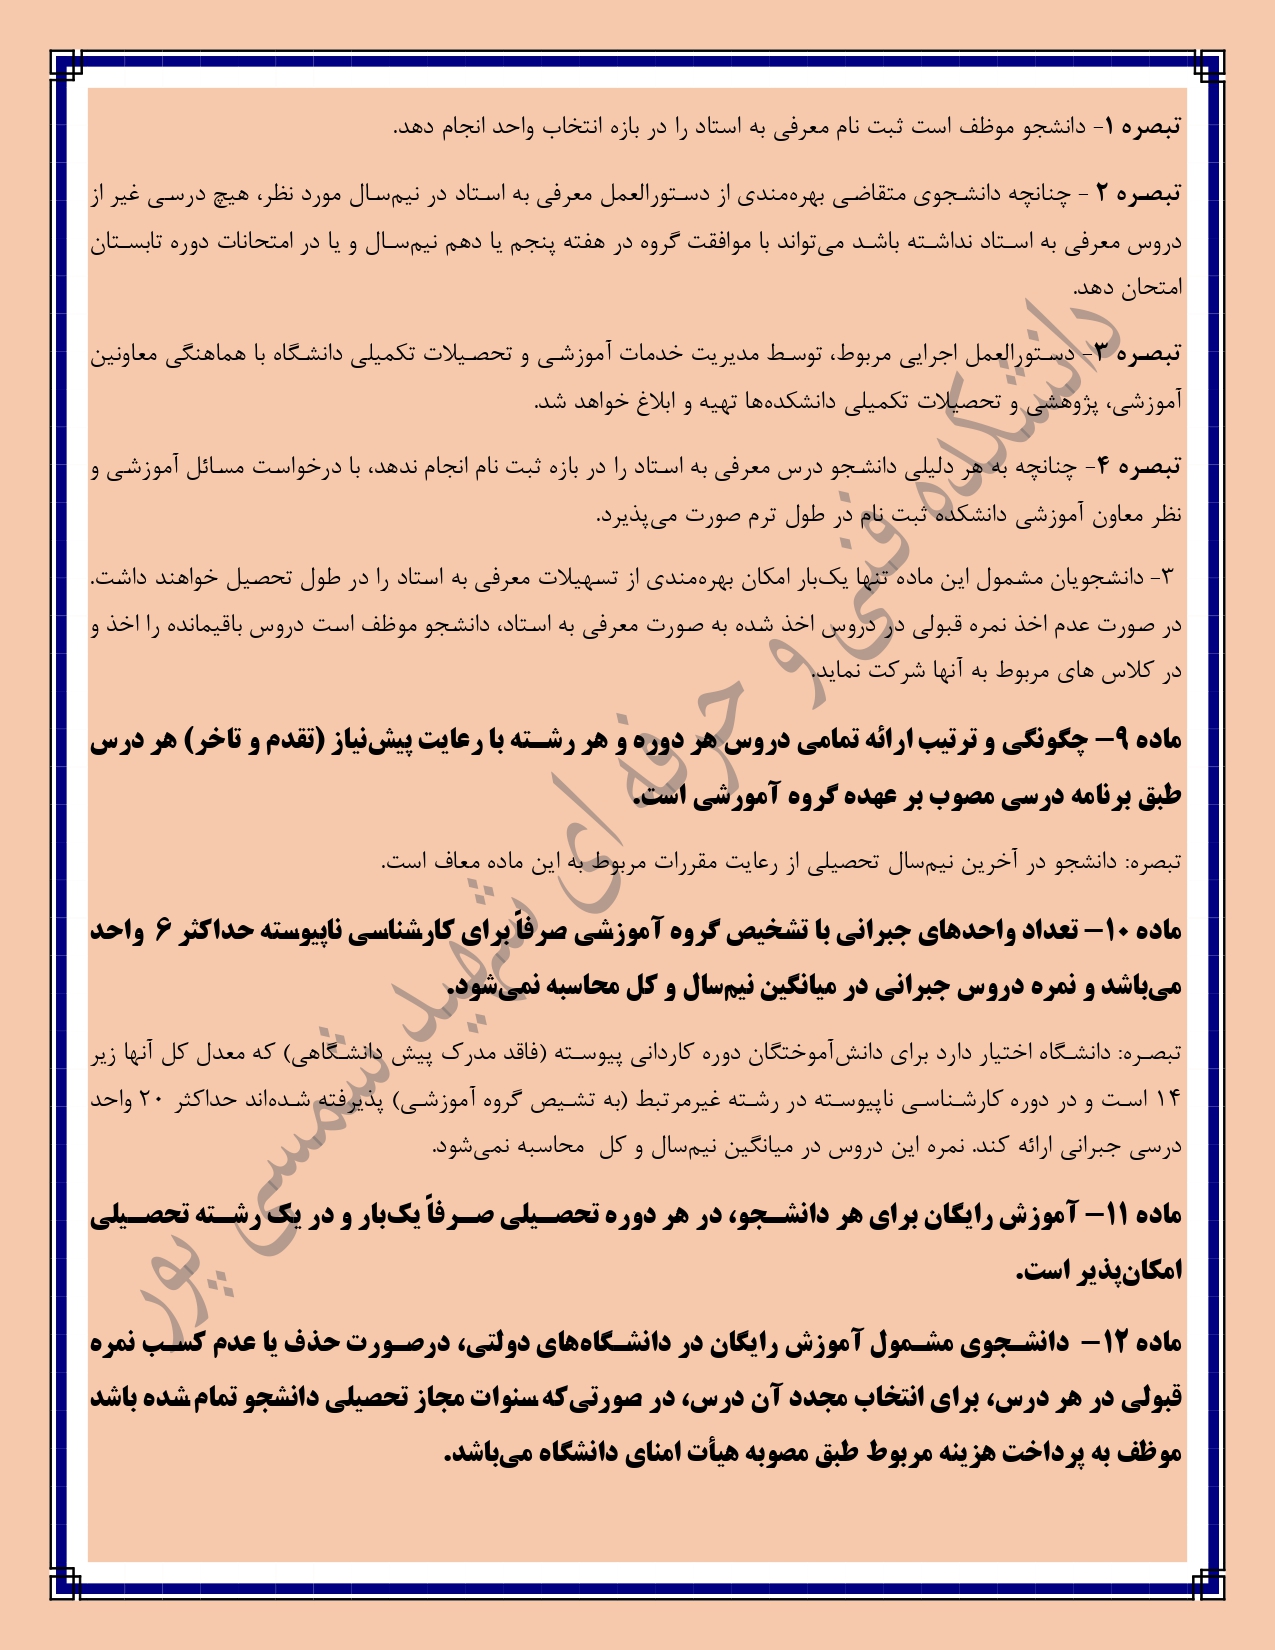 تبصره ۱- دانشجو موظف است ثبت نام معرفی به استاد را در بازه انتخاب واحد انجام دهد.
تبصره ۲ - چنانچه دانشجوی متقاضی بهره‌مندی از دستورالعمل معرفی به استاد در نیم‌سال مورد نظر، هیچ درسی غیر از
دروس معرفی به استاد نداشته باشد می‌تواند با موافقت گروه در هفته پنجم یا دهم نیم‌سال و یا در امتحانات دوره تابستان
امتحان دهد.
تبصره ۳- دستورالعمل اجرایی مربوط، توسط مدیریت خدمات آموزشی و تحصیلات تکمیلی دانشگاه با هماهنگی معاونین
آموزشی، پژوهشی و تحصیلات تکمیلی دانشکده‌ها تهیه و ابلاغ خواهد شد.
تبصره ۴- چنانچه به هر دلیلی دانشجو درس معرفی به استاد را در بازه ثبت نام انجام ندهد، با درخواست مسائل آموزشی و
نظر معاون آموزشی دانشکده ثبت نام در طول ترم صورت می‌پذیرد.
۳- دانشجویان مشمول این ماده تنها یک‌بار امکان بهره‌مندی از تسهیلات معرفی به استاد را در طول تحصیل خواهند داشت.
در صورت عدم اخذ نمره قبولی در دروس اخذ شده به صورت معرفی به استاد، دانشجو موظف است دروس باقیمانده را اخذ و
در کلاس های مربوط به آنها شرکت نماید.
ماده ۹- چگونگی و ترتیب ارائه تمامی دروس هر دوره و هر رشته با رعایت پیش‌نیاز (تقدم و تاخر) هر درس
طبق برنامه درسی مصوب بر عهده گروه آمورشی است.
تبصره: دانشجو در آخرین نیم‌سال تحصیلی از رعایت مقررات مربوط به این ماده معاف است.
ماده ۱۰- تعداد واحدهای جبرانی با تشخیص گروه آموزشی صرفاً برای کارشناسی ناپیوسته حداکثر ۶ واحد
می‌باشد و نمره دروس جبرانی در میانگین نیم‌سال و کل محاسبه نمی‌شود.
تبصره: دانشگاه اختیار دارد برای دانش‌آموختگان دوره کاردانی پیوسته (فاقد مدرک پیش دانشگاهی) که معدل کل آنها زیر
۱۴ است و در دوره کارشناسی ناپیوسته در رشته غیرمرتبط (به تشیص گروه آموزشی) پذیرفته شده‌اند حداکثر ۲۰ واحد
درسی جبرانی ارائه کند. نمره این دروس در میانگین نیم‌سال و کل محاسبه نمی‌شود.
ماده ۱۱- آموزش رایگان برای هر دانشجو، در هر دوره تحصیلی صرفاً یک‌بار و در یک رشته تحصیلی
امکان‌پذیر است.
ماده ۱۲- دانشجوی مشمول آموزش رایگان در دانشگاه‌های دولتی، درصورت حذف یا عدم کسب نمره
قبولی در هر درس، برای انتخاب مجدد آن درس، در صورتی‌که سنوات مجاز تحصیلی دانشجو تمام شده باشد
موظف به پرداخت هزینه مربوط طبق مصوبه هیأت امنای دانشگاه می‌باشد.
دانشکده فنی و حرفه ای شهید شمسی پور